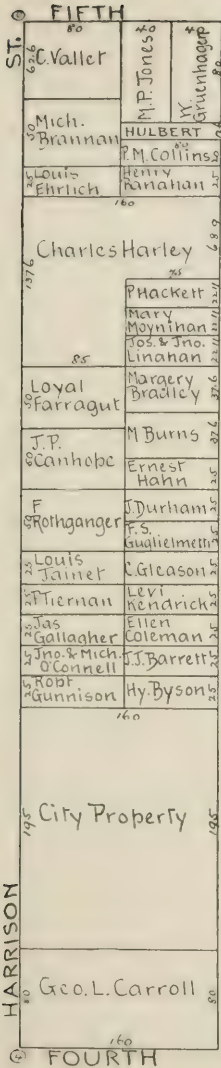 FIFTH
ST.
80
62.6
C. Vallet
M.P. Jones
40
W.
Gruenhagen
80
50
Mich.
Brannan
HULBERT
P.M. Collins
25
Louis
Ehrlich
Henry
Ranahan
25
160
137.6
Charles Harley
68.9
75
P Hackett
22.11
Mary
Moynihan
22.11
Jos. & Jno.
Linahan
22.11
85
50
Loyal
Farragut
Margery
Bradley
37.6
60
J.P.
Canhope
M Burns
37.6
Ernest
Hahn
25
F
Rothganger
J. Durham
25
F.S.
Guglielmetti
25
25
Louis
Jainet
C. Gleason
25
25
P Tiernan
Levi
Kendrick
25
25
Jas
Gallagher
Ellen
Coleman
25
25
Jno. & Mich.
O'Connell
J.J. Barrett
25
25
Robt
Gunnison
Hy. Byson
25
160
195
City Property
195
HARRISON
80
Geo. L. Carroll
80
160
FOURTH